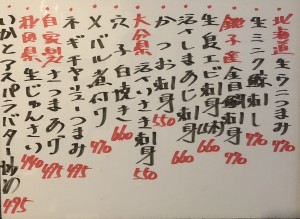 北海道 生ウニつまみ 770
生ミンク鯨刺し 770
銚子産 金目鯛刺身 770
生夏エビ刺身 660
活〆しまあじ刺身 660
かつお刺身 550
大分県 活いさき刺身 550
穴子白焼き 660
メバル煮付け 770
ネギチャーシューつまみ 495
自家製さつまあげ 495
秋田県 生じゅんさい 440
いかとアスパラバター炒め 495